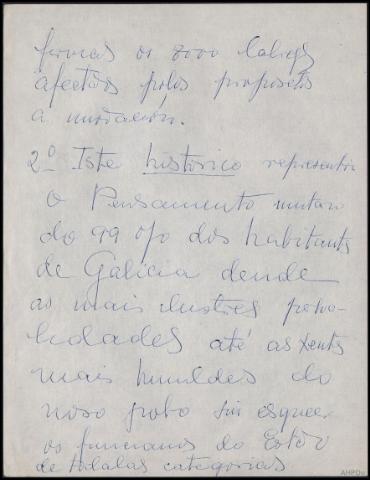 afectados polos propostos
a inundación.
2º Iste histórico representa
o Pensamento unitario
do 99 o/o dos habitants
de Galicia dende
as mais ilustres perso-
lidades até as xents
mais humildes do
noso pobo sin esquecer
os funcionarios do Estado
de todalas categorias
AHPOu